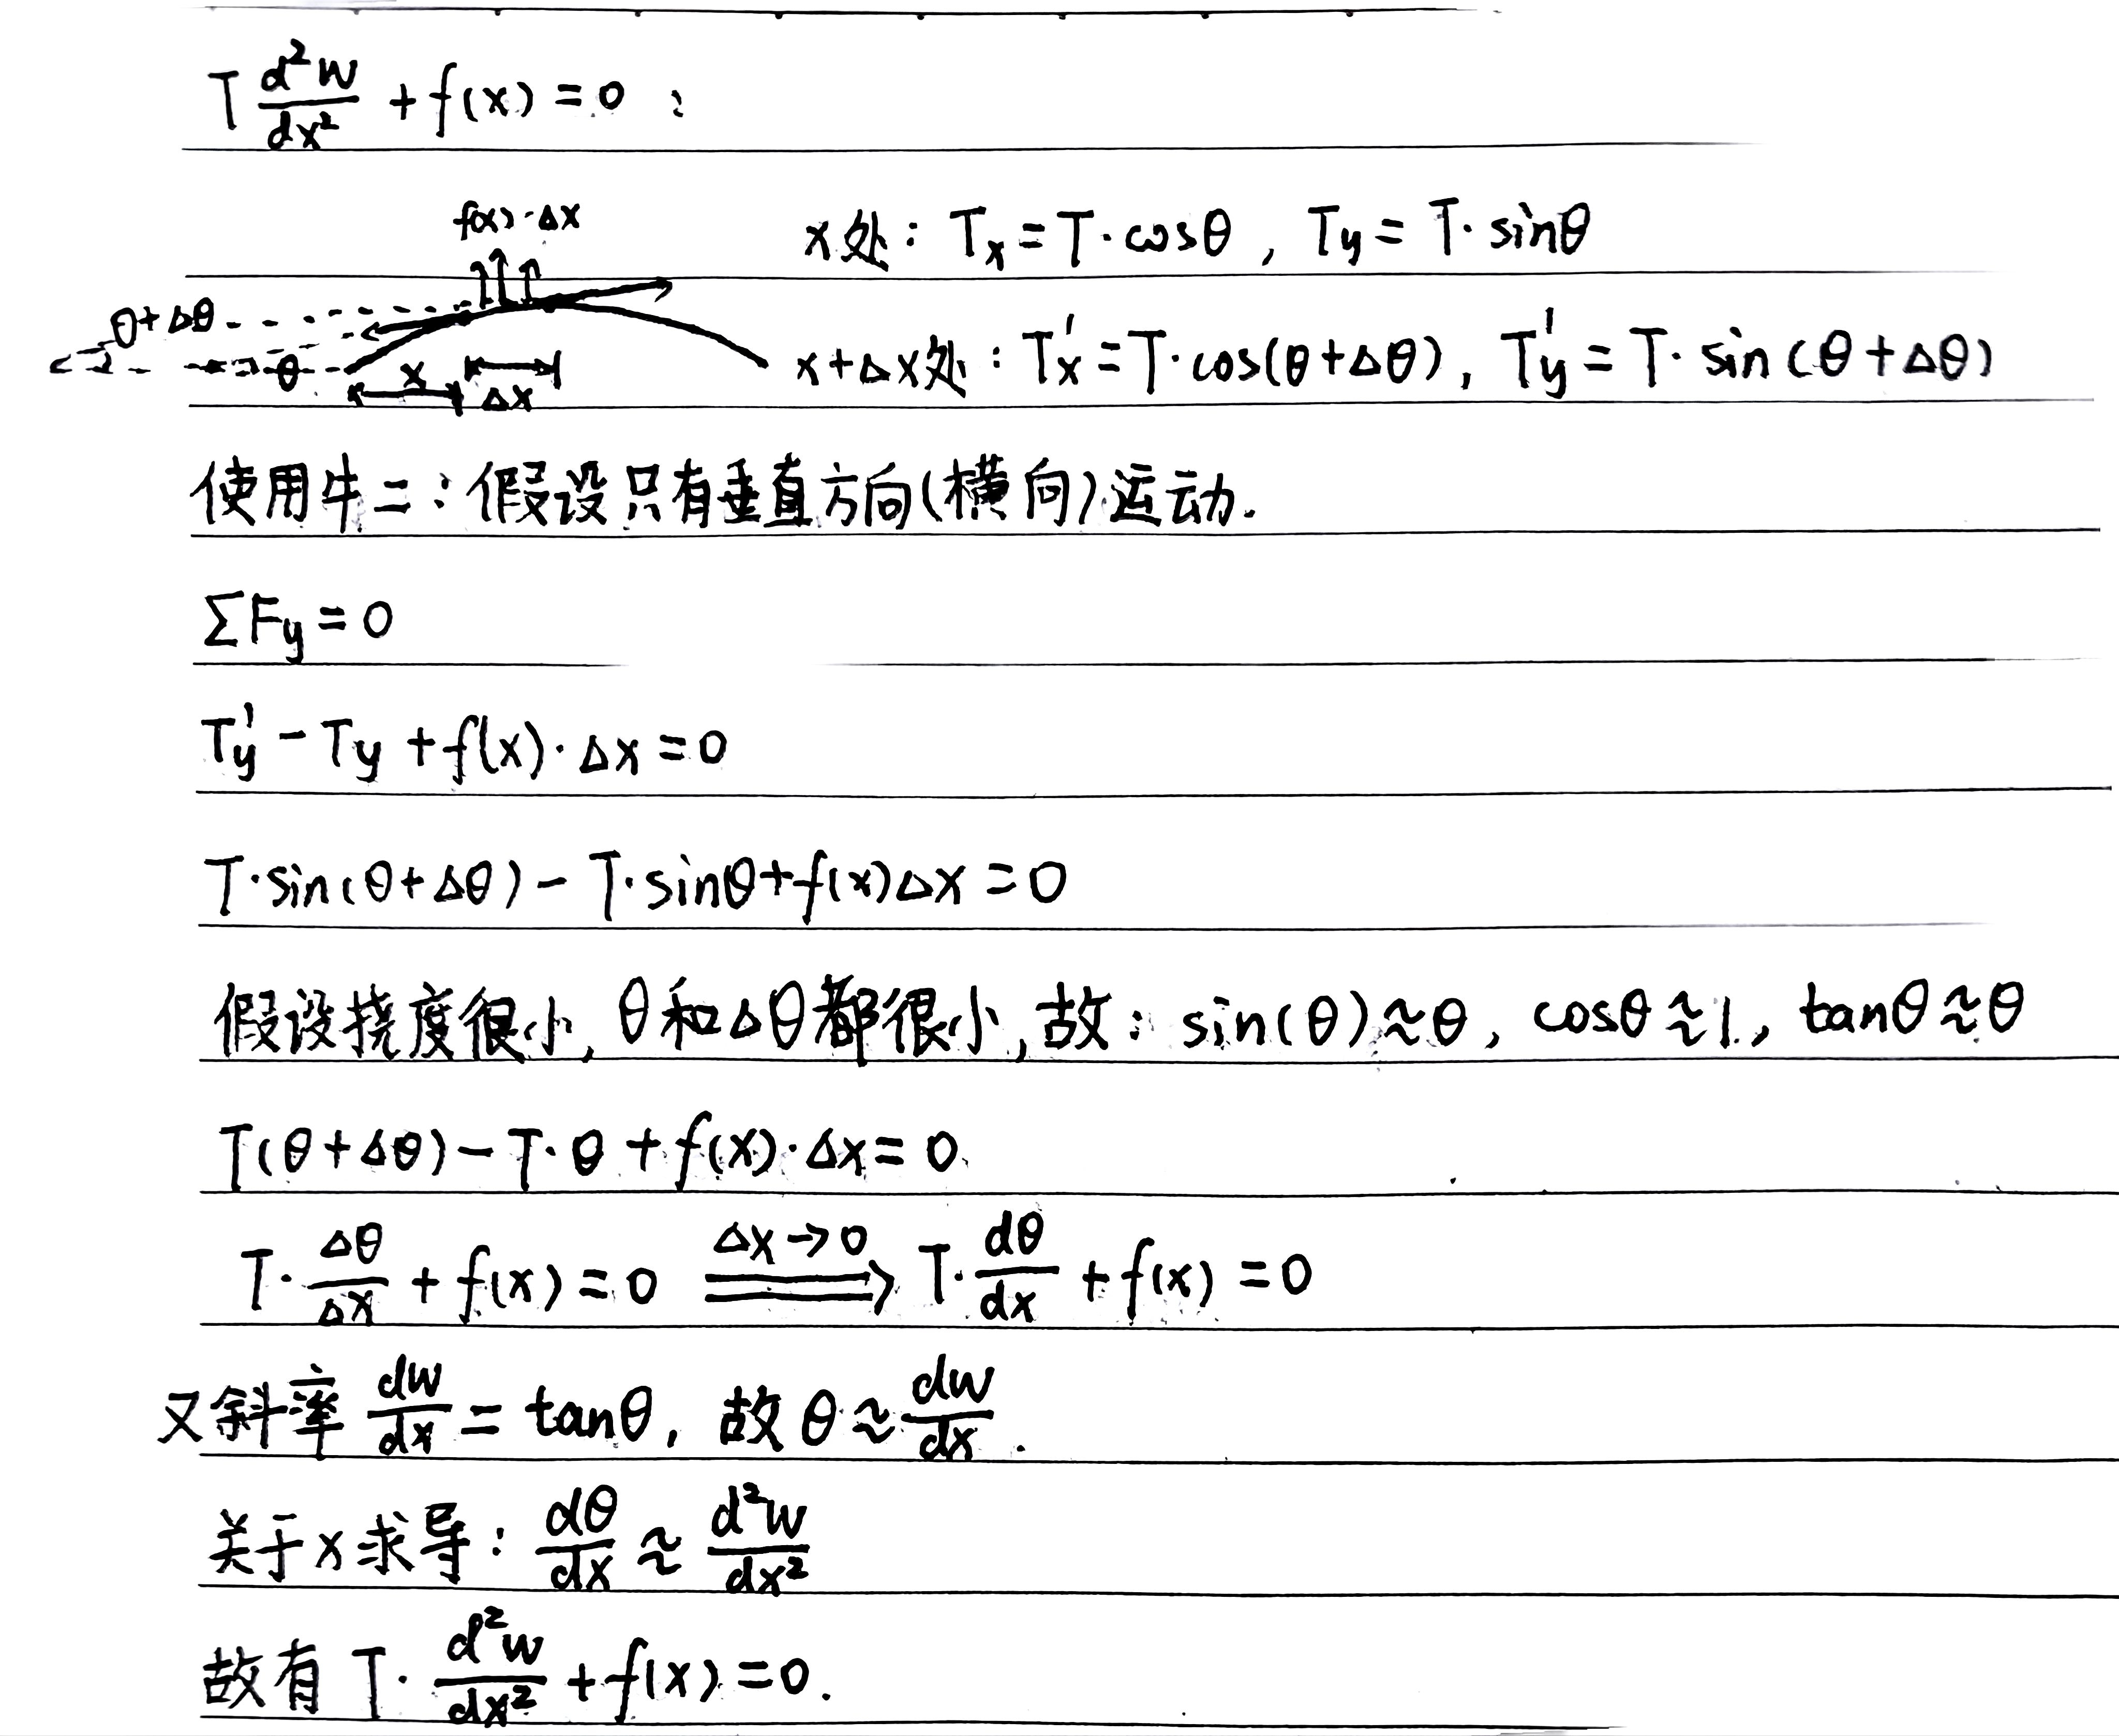 T d²w/dx² + f(x) = 0 :
f(x)·Δx
x处: Tx = T·cosθ , Ty = T·sinθ
θ+Δθ
θ
x
Δx
x+Δx处: Tx' = T·cos(θ+Δθ), Ty' = T·sin(θ+Δθ)
使用牛二:假设只有垂直方向(横向)运动.
ΣFy = 0
Ty' - Ty + f(x)·Δx = 0
T·sin(θ+Δθ) - T·sinθ + f(x)Δx = 0
假设挠度很小, θ和Δθ都很小,故: sin(θ)≈θ, cosθ≈1, tanθ≈θ
T(θ+Δθ) - T·θ + f(x)·Δx = 0
T·Δθ/Δx + f(x) = 0 ⟹ (Δx→0) T·dθ/dx + f(x) = 0
又斜率 dw/dx = tanθ, 故 θ≈dw/dx.
关于x求导: dθ/dx ≈ d²w/dx²
故有 T·d²w/dx² + f(x) = 0.